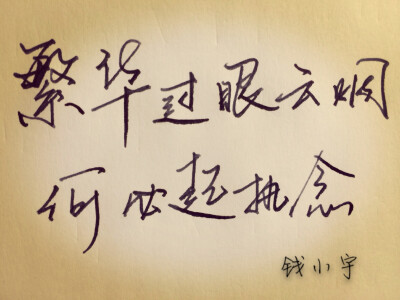 繁华过眼云烟
何必起执念
钱小宇